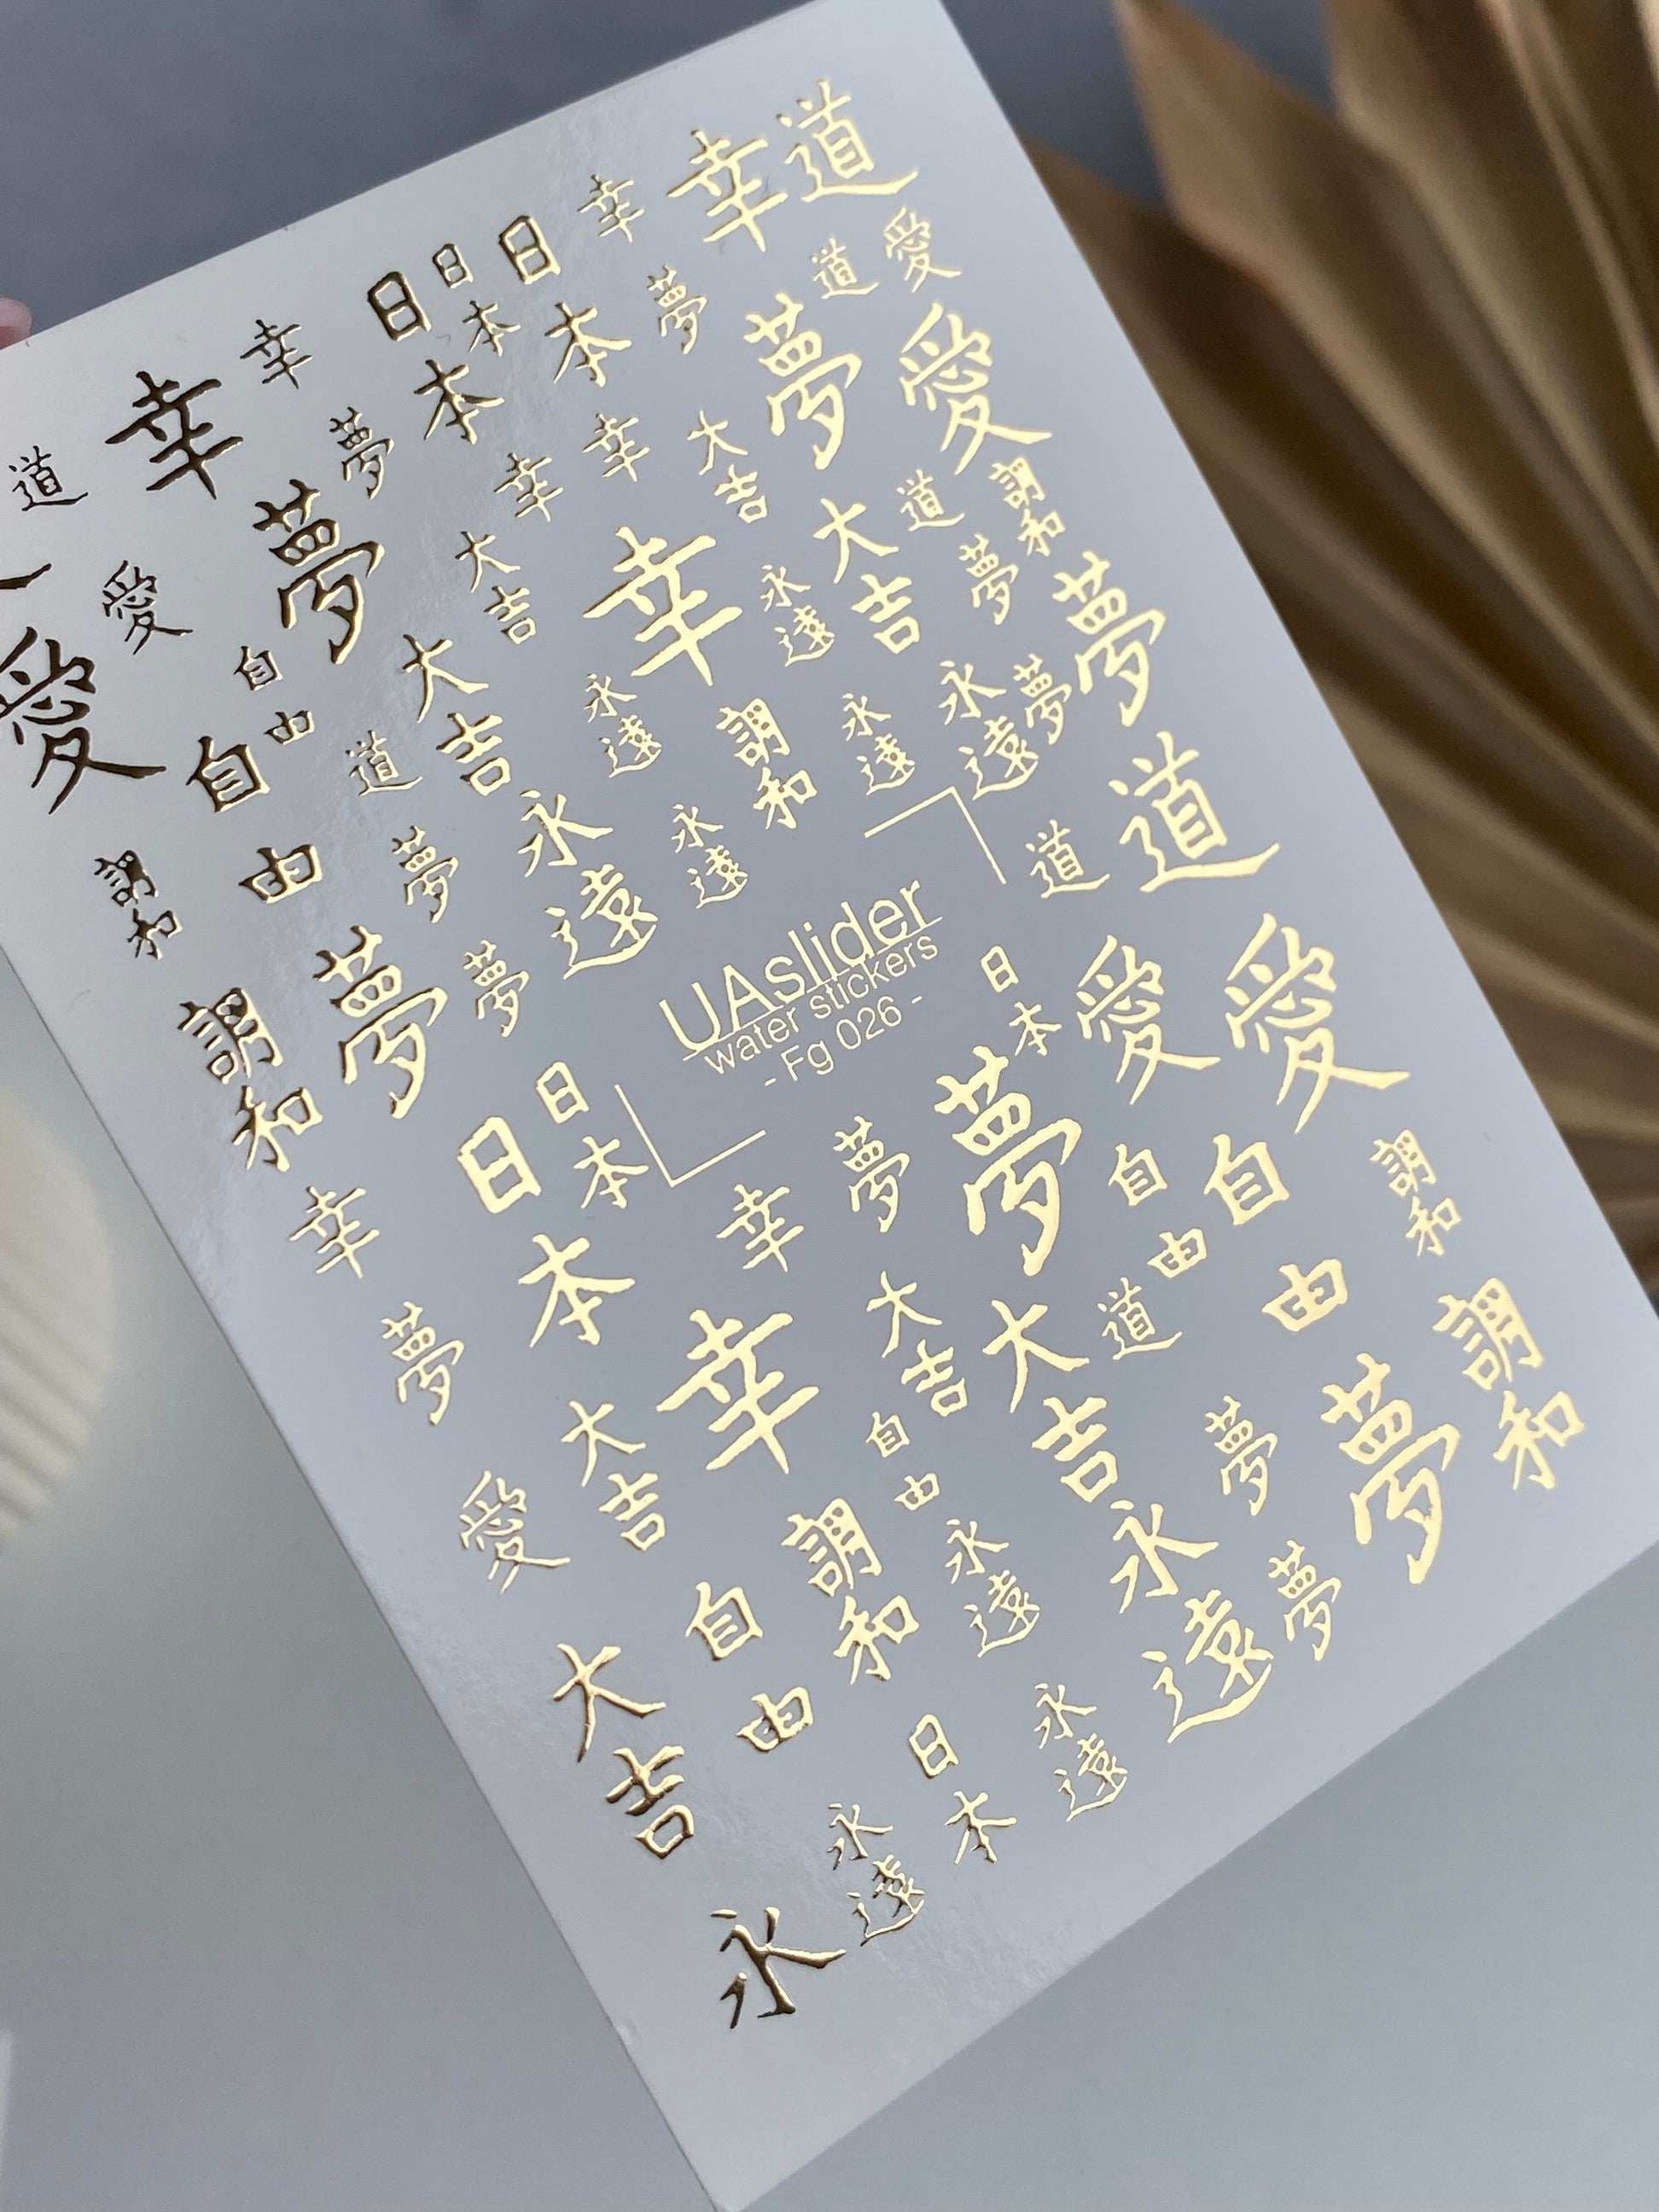 道
幸
幸
日本
日本
日本
幸
幸
道
愛
道
夢
夢
愛
夢
夢
幸
幸
大吉
大吉
道
調和
愛
愛
自由
自由
大吉
幸
永遠
大吉
夢
夢
道
永遠
調和
永遠
永遠
夢
道
道
調和
夢
永遠
永遠
UAslider
water stickers
- Fg 026 -
調和
夢
夢
日本
日本
日本
愛
愛
幸
幸
夢
夢
自由
自由
調和
夢
大吉
幸
大吉
大吉
道
調和
愛
自由
永遠
夢
夢
大吉
自由
調和
永遠
夢
日本
永遠
永遠
永